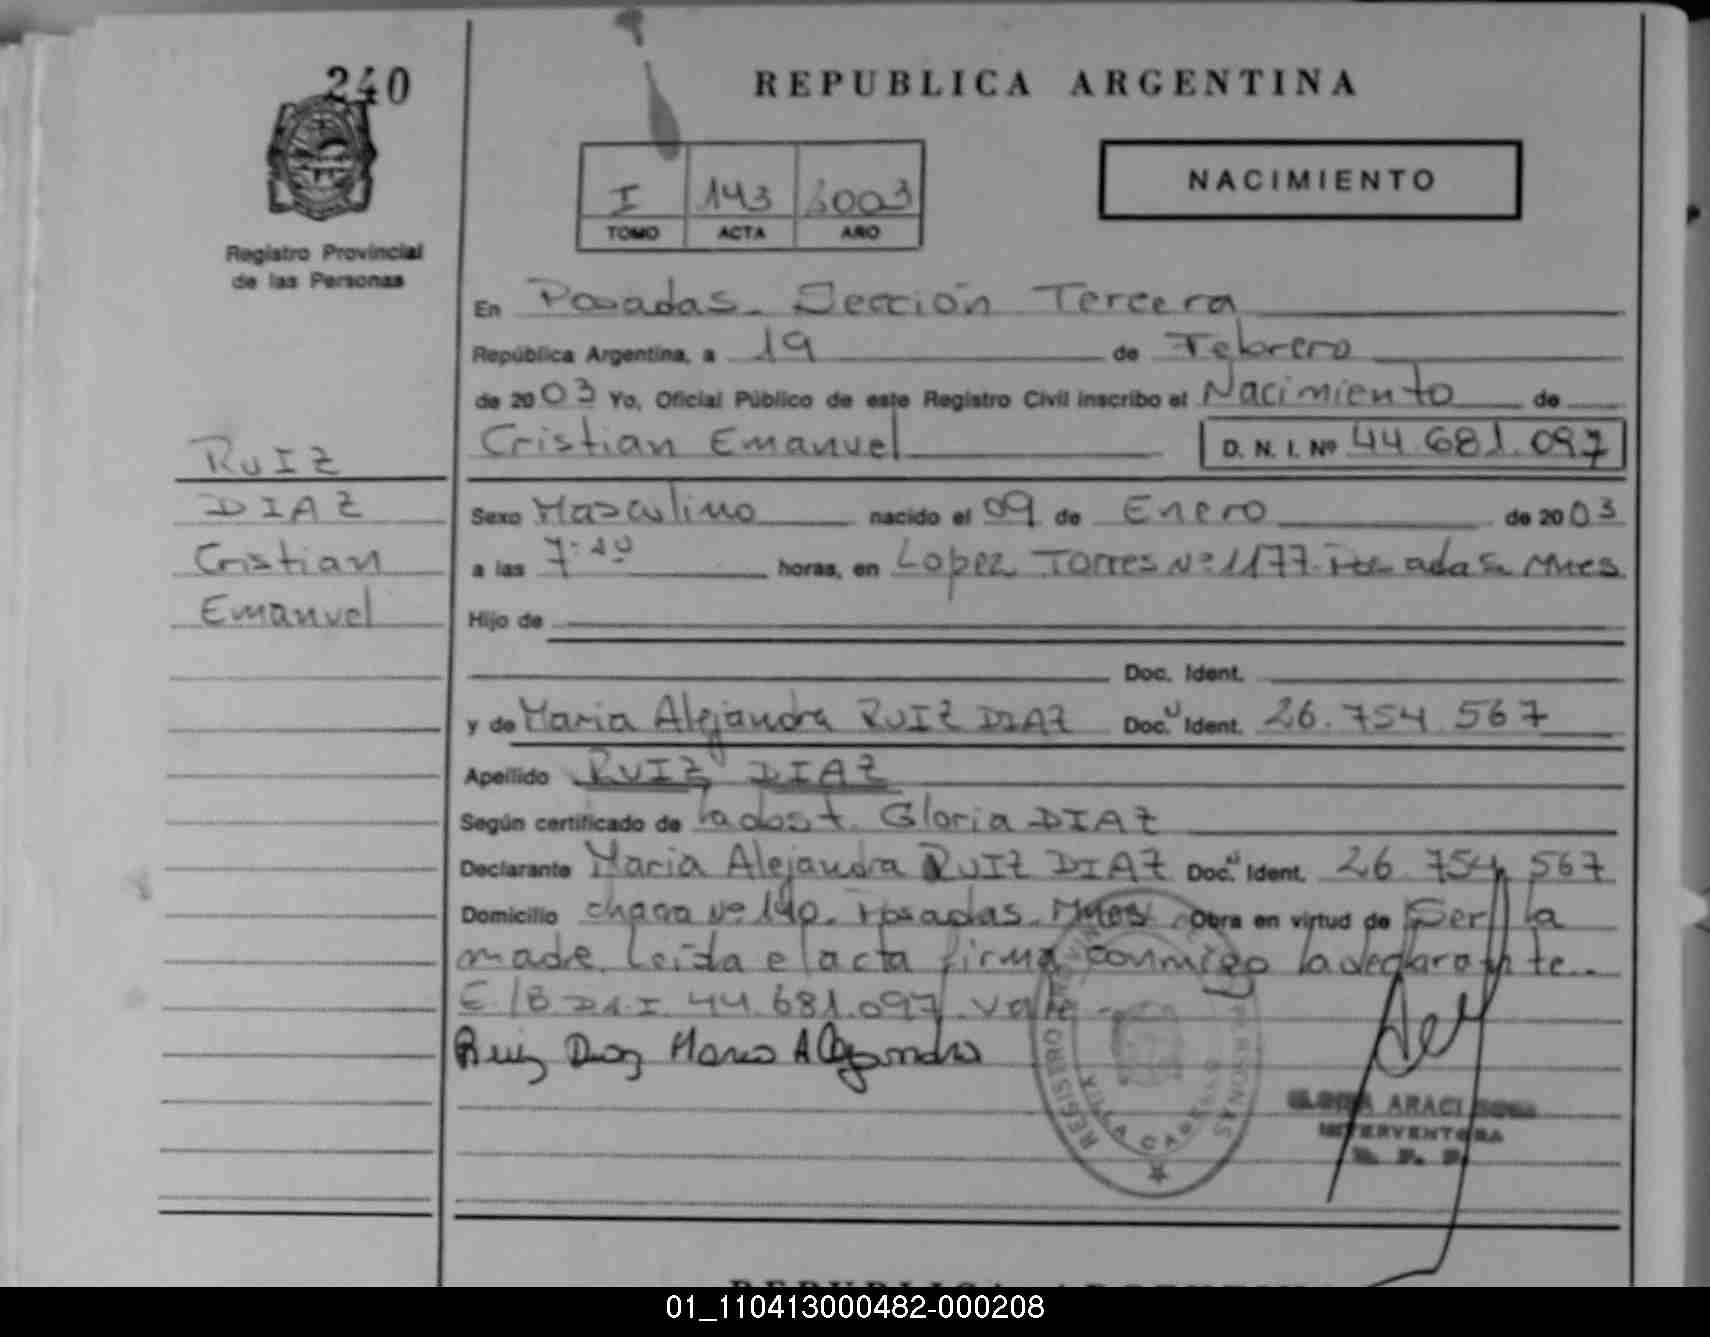 240
REPUBLICA ARGENTINA
NACIMIENTO
I 143 2003
TOMO ACTA AÑO
Registro Provincial
de las Personas
En Posadas - Sección Tercera
República Argentina, a 19 de Febrero
de 2003 Yo, Oficial Público de este Registro Civil inscribo el Nacimiento de
Cristian Emanuel D. N. I. Nº 44.681.097
RUIZ
DIAZ
Cristian
Emanuel
Sexo Masculino nacido el 09 de Enero de 2003
a las horas, en Lopez Torres Nº 1177. Posadas Mnes
Hijo de
Doc. Ident.
y de Maria Alejandra RUIZ DIAZ Doc. Ident. 26.754.567
Apellido RUIZ DIAZ
Según certificado de la obst. Gloria DIAZ
Declarante Maria Alejandra RUIZ DIAZ Doc. Ident. 26.754.567
Domicilio chacra Nº 140. Posadas. Mnes Obra en virtud de Ser la
madre. Leída el acta firma conmigo la declarante.
E/B D.N.I. 44.681.097. Vale -
Ruiz Diaz Maria Alejandra
REGISTRO PERSONAS
VILLA CABELLO
ARACI
INTERVENTORA
R. P. P.
REPUBLICA ARGENTINA
01_110413000482-000208